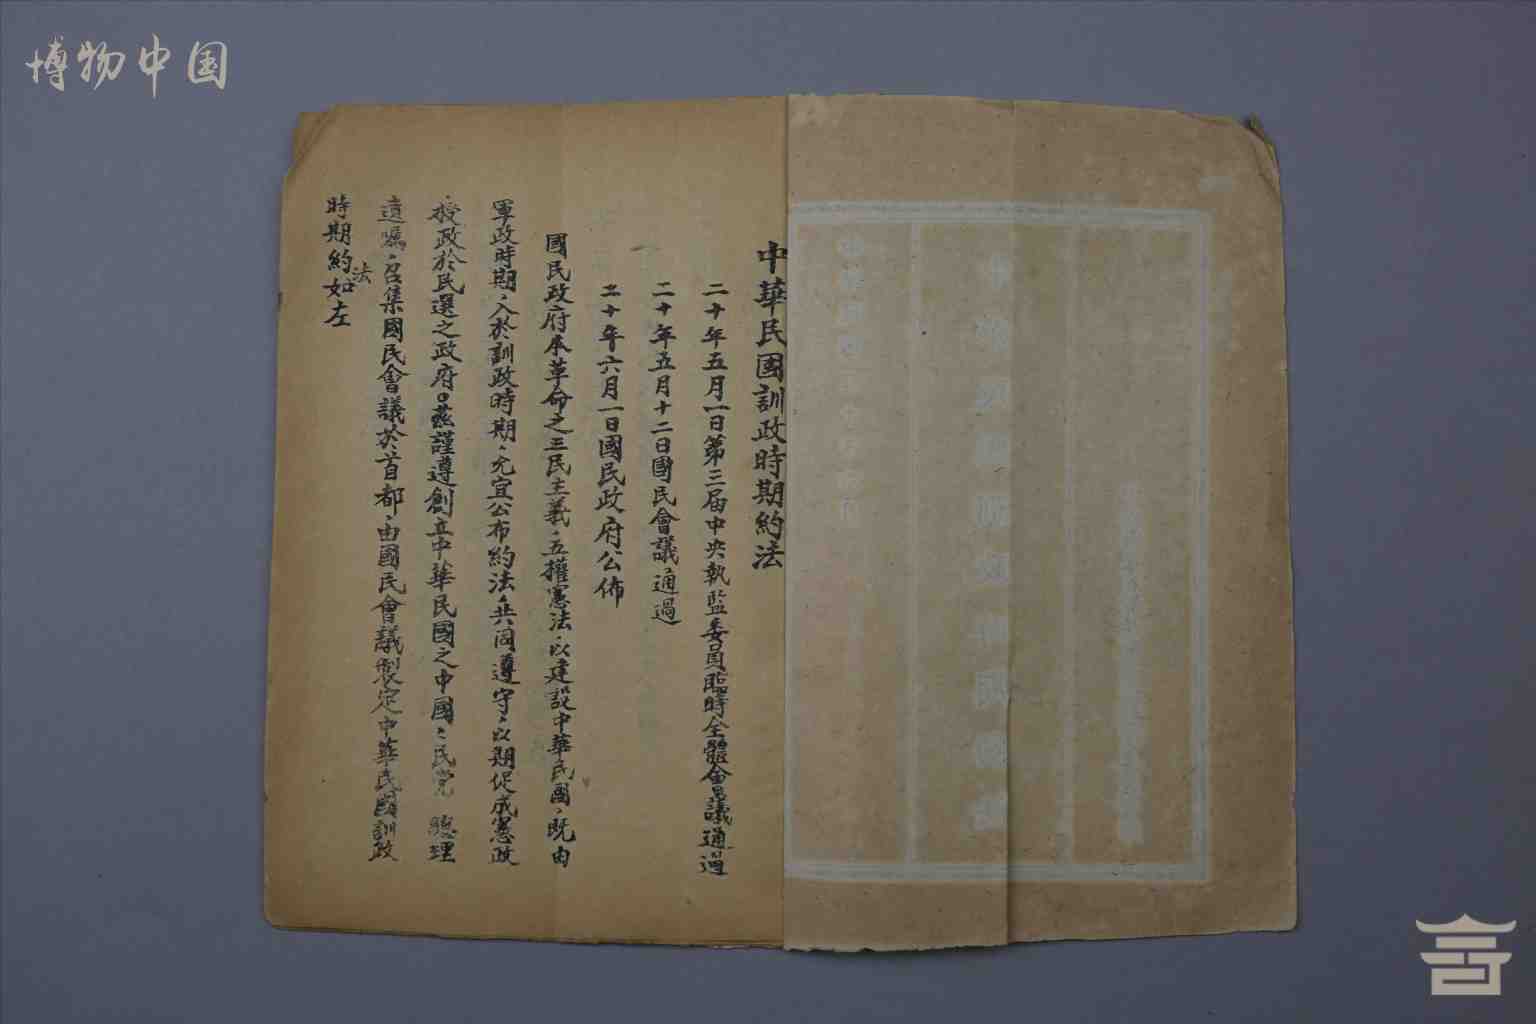 博物中国
中華民國訓政時期約法
二十年五月一日第三届中央執監委員臨時全體會議通過
二十年五月十二日國民會議通過
二十年六月一日國民政府公佈
國民政府本革命之三民主義、五權憲法、以建設中華民國、既由
軍政時期、入於訓政時期、允宜公布約法、共同遵守、以期促成憲政
、授政於民選之政府。茲謹遵創立中華民國之中國ミ民党 總理
遺囑、召集國民會議於首都、由國民會議製定中華民國訓政
時期約法如左